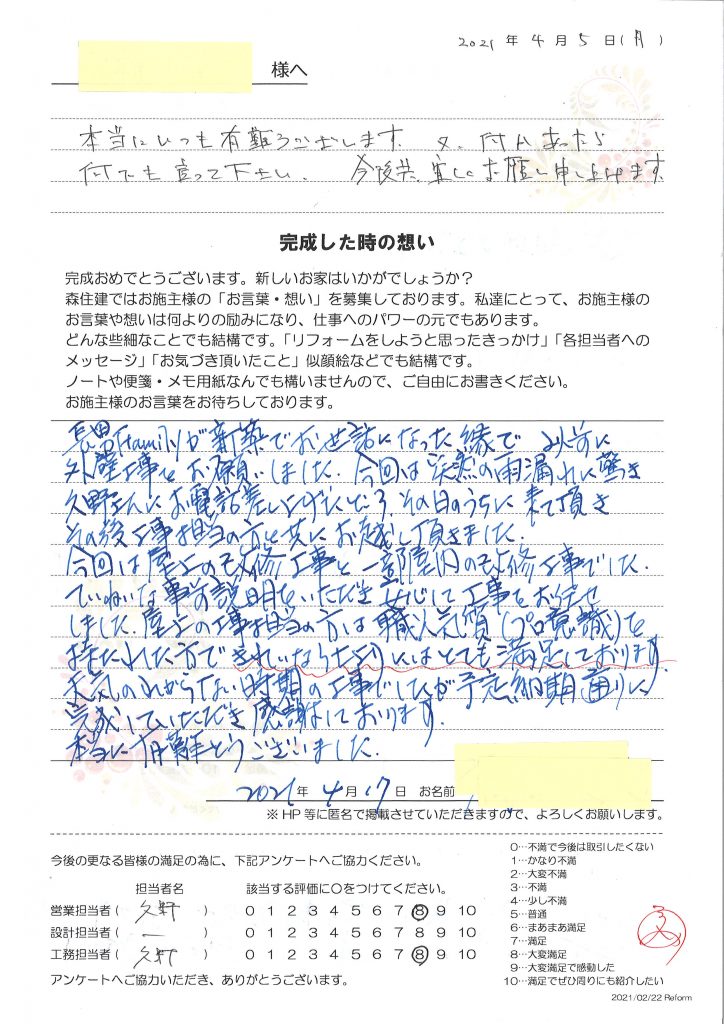 2021 年 4 月 5 日(月)
様へ
本当にいつも有難うございます。又、何かあったら
何でも言って下さい。 今後共、宜しくお願い申し上げます。
完成した時の想い
完成おめでとうございます。新しいお家はいかがでしょうか?
森住建ではお施主様の「お言葉・想い」を募集しております。私達にとって、お施主様の
お言葉や想いは何よりの励みになり、仕事へのパワーの元でもあります。
どんな些細なことでも結構です。「リフォームをしようと思ったきっかけ」「各担当者への
メッセージ」「お気づき頂いたこと」似顔絵などでも結構です。
ノートや便箋・メモ用紙なんでも構いませんので、ご自由にお書きください。
お施主様のお言葉をお待ちしております。
長男familyが新築でお世話になった縁で 以前に
外壁工事をお願いしました。今回は突然の雨漏れに驚き
久野さんにお電話差し上げたところ、その日のうちに来て頂き
その後工事担当の方と共にお越し頂きました。
今回は屋上の改修工事と一部屋内の改修工事でした。
ていねいな事前説明をいただき安心して工事をお任せ
しました。屋上の工事担当の方は職人気質(プロ意識)を
持たれた方できれいな仕上りにはとても満足しております。
天気のわからない時期の工事でしたが予定納期通りに
完成していただき感謝しております。
本当に有難とうございました。
2021 年 4 月 17 日 お名前
※HP 等に匿名で掲載させていただきますので、よろしくお願いします。
今後の更なる皆様の満足の為に、下記アンケートへご協力ください。
担当者名 該当する評価に○をつけてください。
営業担当者( 久野 ) 0 1 2 3 4 5 6 7 8 9 10
設計担当者( ー ) 0 1 2 3 4 5 6 7 8 9 10
工務担当者( 久野 ) 0 1 2 3 4 5 6 7 8 9 10
アンケートへご協力いただき、ありがとうございます。
0…不満で今後は取引したくない
1…かなり不満
2…大変不満
3…不満
4…少し不満
5…普通
6…まあまあ満足
7…満足
8…大変満足
9…大変満足で感動した
10…満足でぜひ周りにも紹介したい
2021/02/22 Reform